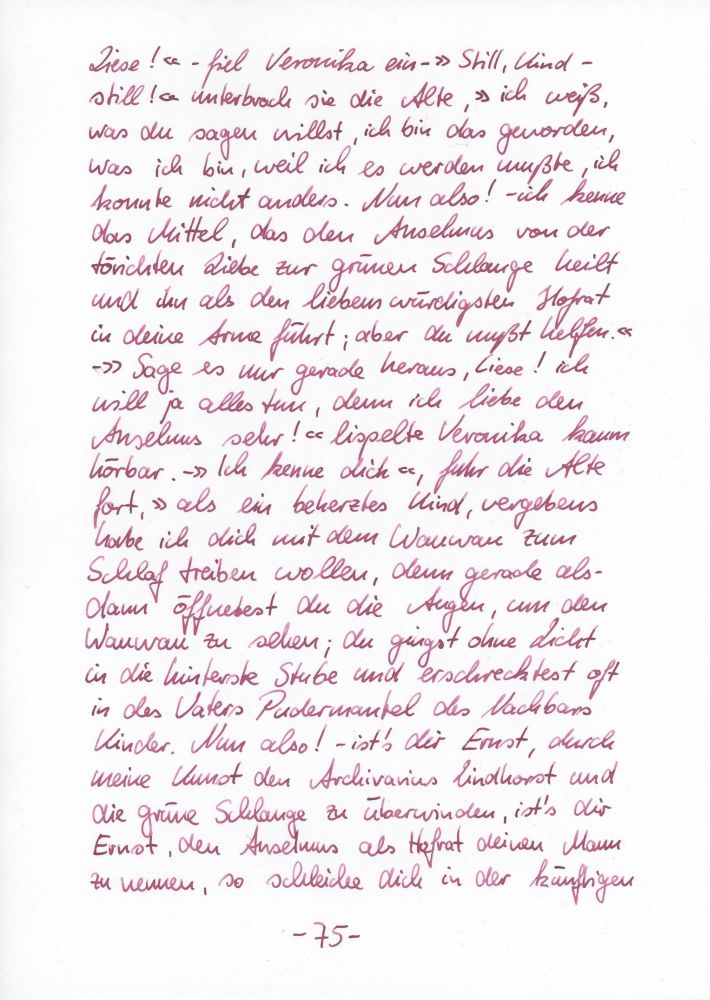 Liese!« - fiel Veronika ein -» Still, Kind -
still!« unterbrach sie die Alte, » ich weiß,
was du sagen willst, ich bin das geworden,
was ich bin, weil ich es werden mußte, ich
konnte nicht anders. Nun also! - ich kenne
das Mittel, das den Anselmus von der
törichten Liebe zur grünen Schlange heilt
und ihn als den liebenswürdigsten Hofrat
in deine Arme führt; aber du mußt helfen.«
-» Sage es nur gerade heraus, Liese! ich
will ja alles tun, denn ich liebe den
Anselmus sehr!« lispelte Veronika kaum
hörbar. -» Ich kenne dich «, fuhr die Alte
fort, » als ein beherztes Kind, vergebens
habe ich dich mit dem Wauwau zum
Schlaf treiben wollen, denn gerade als-
dann öffnetest du die Augen, um den
Wauwau zu sehen; du gingst ohne Licht
in die hinterste Stube und erschrecktest oft
in des Vaters Pudermantel des Nachbars
Kinder. Nun also! - ist's dir Ernst, durch
meine Kunst den Archivarius Lindhorst und
die grüne Schlange zu überwinden, ist's dir
Ernst, den Anselmus als Hofrat deinen Mann
zu nennen, so schleiche dich in der künftigen
- 75 -